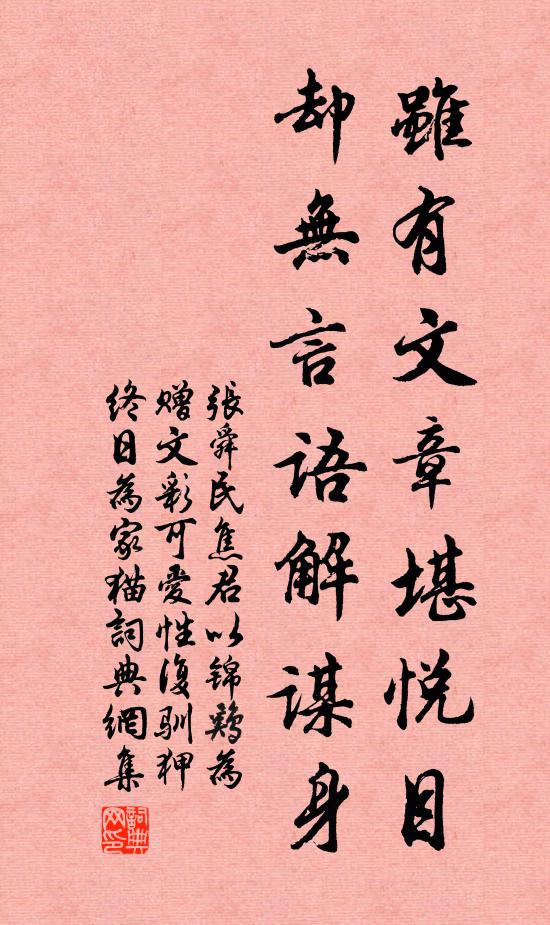 雖有文章堪悅目
却無言語解謀身
張舜民焦君以錦鷄為
贈文彩可愛性復馴狎
終日為家猫詞典網集
詞典网印